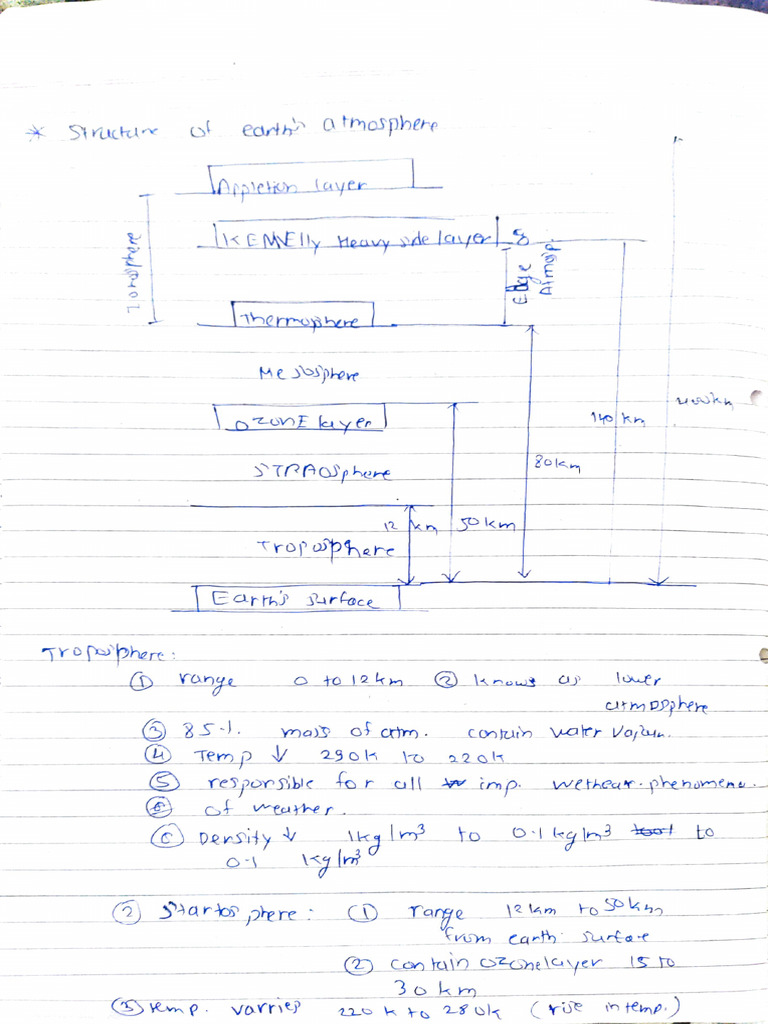 * Structure of earth's atmosphere
Appletion layer
KENNElly Heavy side layer
Ionosphere
Edge
Atmop.
Thermophere
Mesosphere
OZONE layer
140 km
80km
STRAOsphere
12 km
50km
Troposphere
Earth's surface
Troposphere:
① range 0 to 12km ② knows as lower
atmosphere
③ 85%. mass of atm. contain water vapour.
④ Temp ↓ 290k to 220k
⑤ responsible for all imp. wethear phenomena.
of weather.
⑥ Density ↓ 1kg/m³ to 0.1kg/m³ to
0.1 1kg/m³
② Startosphere: ① range 12km to 50km
from earth surface
② contain ozonelayer 15 to
30km
③ temp. varries 220k to 280k (rise in temp.)